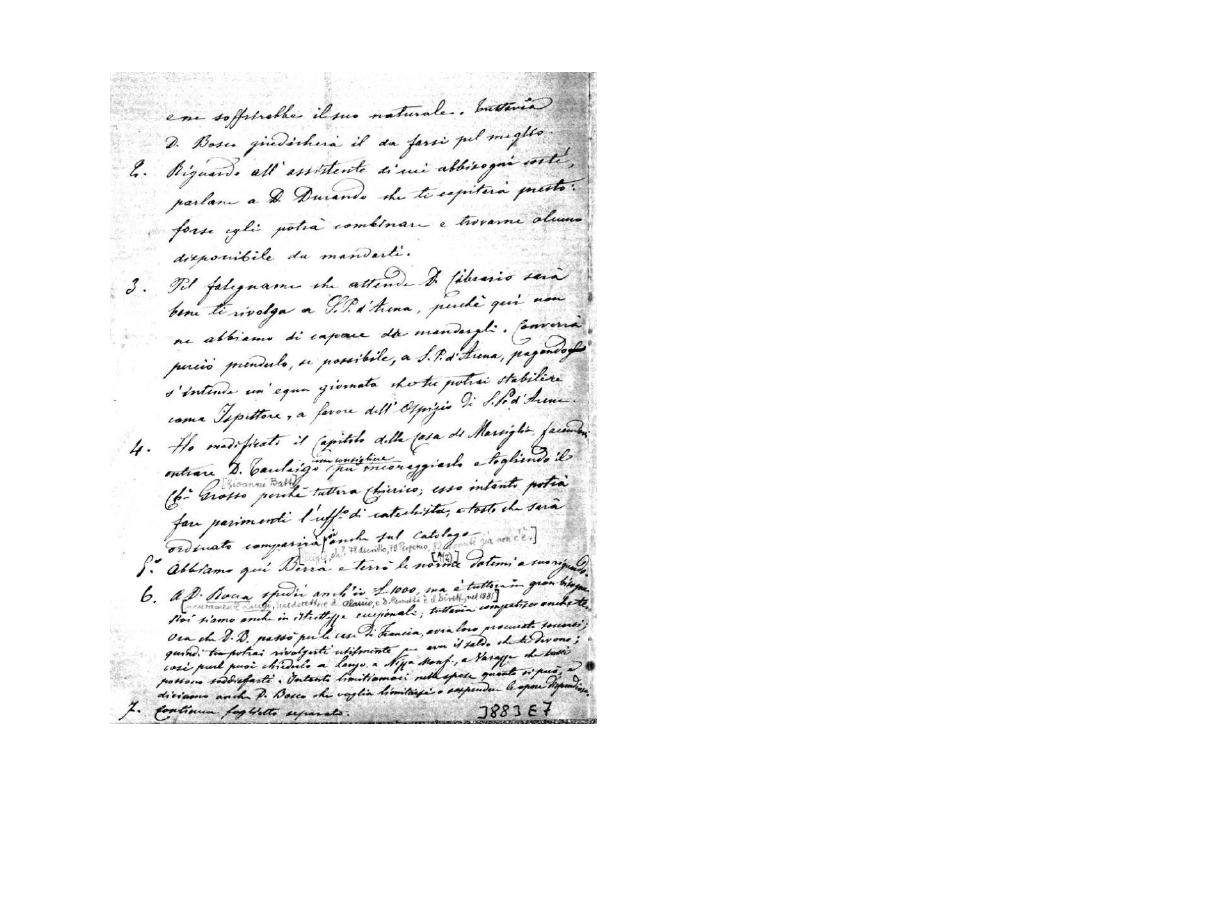 e ne soffrirebbe il suo naturale. Tuttavia
D. Bosco giudicherà il da farsi pel meglio.
2. Riguardo all' assistente di cui abbisogni costì,
parlane a D. Durando che ti capiterà presto:
forse egli potrà combinare e trovarne alcuno
disponibile da mandarti.
3. Pel falegname che attende D. Cibrario sarà
bene ti rivolga a S. P. d'Arena, perchè qui non
ne abbiamo di capace da mandargli. Converrà
perciò prenderlo, se possibile, a S. P. d'Arena, pagando
s'intende un' equa giornata che tu potrai stabilire
come Ispettore, a favore dell' Ospizio di S. P. d'Arena.
4. Ho modificato il Capitolo della Casa di Marsiglia, facendo
entrare D. come consigliere per incoraggiarlo e togliendo il
[Giovanni Batt]
Ch.º Grosso perchè tuttora Chierico; esso intanto potrà
fare parimenti l'uff.º di catechista, e tosto che sarà
ordinato comparirà anche sul Catalogo.
5.º Abbiamo qui Berra e terrò le norme datemi a suo riguardo.
6. A D. Bocca spedii anch'io L. 1000, ma è tuttora in gran bisogno.
Noi siamo anche in strettezze eccezionali; tuttavia compatisco anche te.
Ora che D. B. passò per le case di Francia, avrà loro procurato soccorsi;
quindi tu potrai rivolgerti utilmente per aver il saldo che ti devono;
così pure puoi chiederlo a Nizza Monf., a Varazze che
possono soddisfarti. Intanto limitiamoci nelle spese quanto si può, e
diciamo anche D. Bosco che voglia limitarsi o sospendere le opere dispendiose.
7. Continua foglietto separato.
3883 E 7